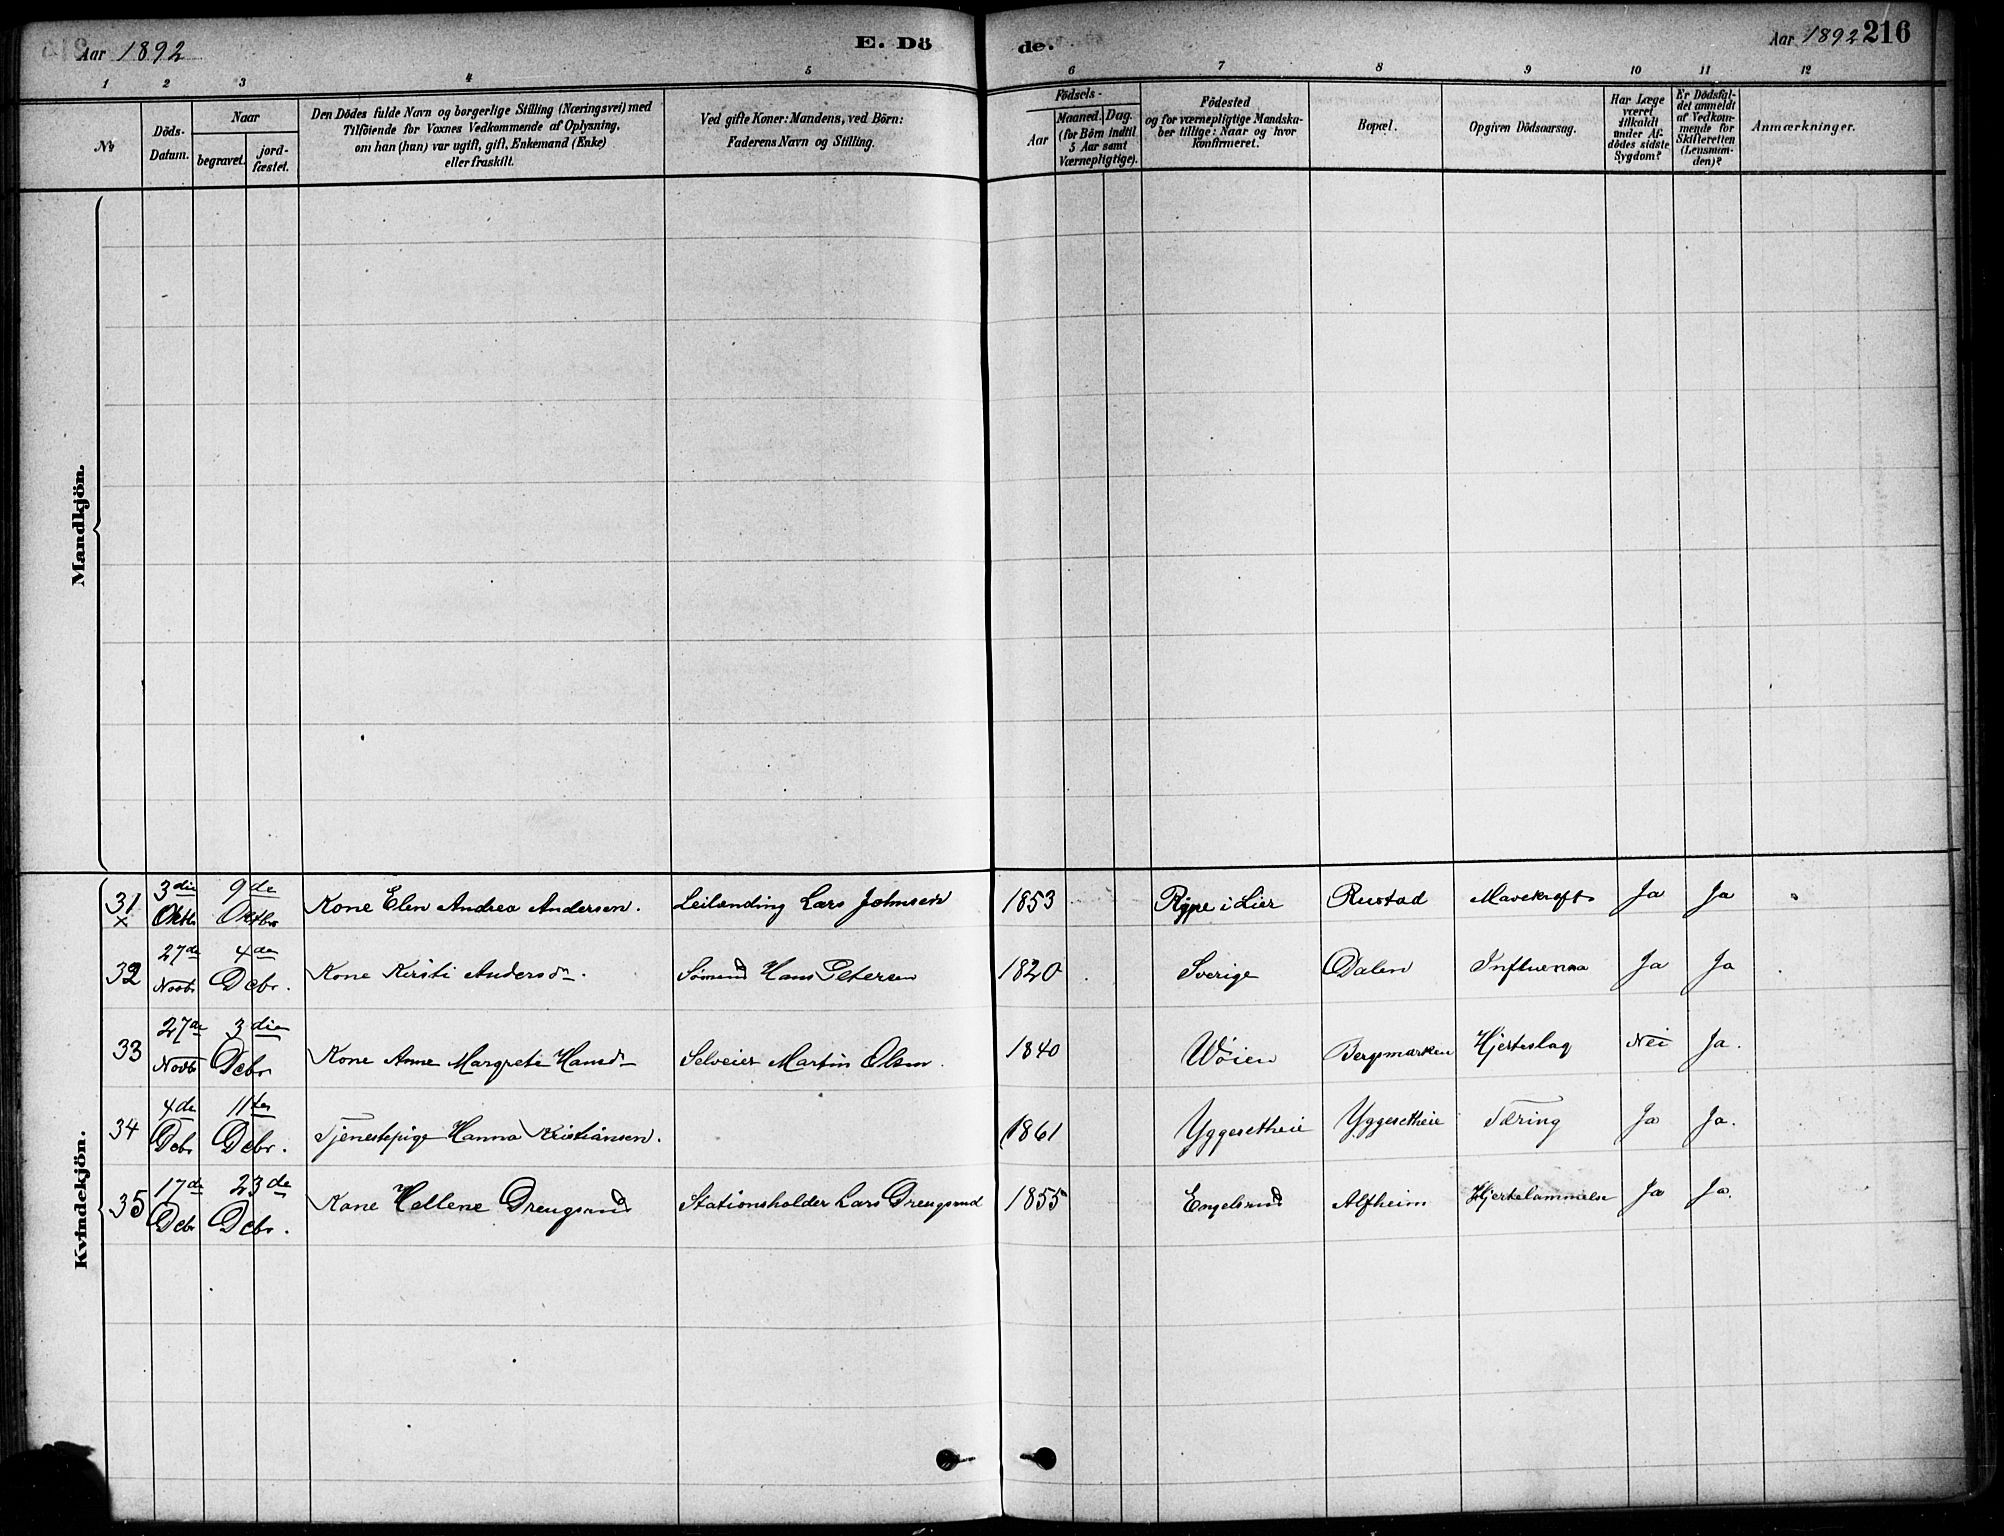 Aar 1892
E. Dö
de.
Aar 1892 216
1 2 3 4 5 6 7 8 9 10 11 12
No
Döds-Datum.
Naar
begravet.
jord-fæstet.
Den Dödes fulde Navn og borgerlige Stilling (Næringsvei) med
Tilföiende for Voxnes Vedkommende af Oplysning,
om han (hun) var ugift, gift, Enkemand (Enke)
eller fraskilt.
Ved gifte Koner: Mandens, ved Börn:
Faderens Navn og Stilling.
Födsels-
Aar
Maaned. Dag.
(for Börn indtil
5 Aar samt
Værnepligtige).
Födested
og for værnepligtige Mandska-
ber tillige: Naar og hvor
konfirmeret.
Bopæl.
Opgiven Dödsaarsag.
Har Læge
været
tilkaldt
under Af-
dödes sidste
Sygdom?
Er Dödsfal-
det anmeldt
af Vedkom-
mende for
Skifteretten
(Lensman-
den)?
Anmærkninger.
Mandkjön.
Kvindekjön.
31 x 3die Oktbr 9de Oktbr Kone Elen Andrea Andersen. Leilending Lars Johnsen 1853 Rype i Lier Rustad Mavekreft Ja Ja
32 27de Novbr 4de Debr. Kone Kirsti Andersdn. Sömand Hans Petersen 1820 Sverige Dalen Influensa Ja Ja
33 27de Novbr 3die Debr Kone Anne Margrete Hansdn Selveier Martin Olsen. 1840 Wöien Bergsmarken Hjerteslag Nei Ja.
34 4de Debr 11te Debr. Tjenestepige Hanna Kristiansen. 1861 Yggesetheie Yggesetheie Tæring Ja Ja.
35 17de Debr 23de Debr. Kone Hellene Drengsrud Stationsholder Lars Drengsrud 1855 Engelsrud Alfheim Hjertelammelse Ja Ja.